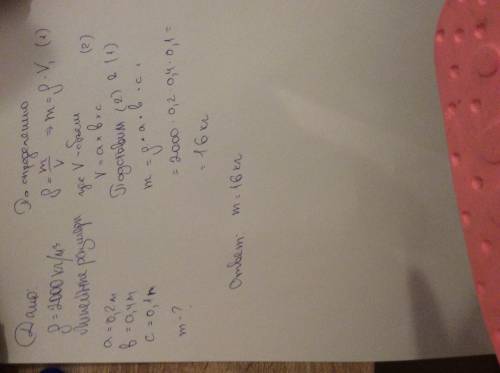 Дано:
ρ = 2000 кг/м³
линейные размеры
a = 0,2 м
b = 0,4 м
c = 0,1 м
m - ?
По определению
ρ = m/V ⇒ m = ρ · V, (1)
где V - объем
V = a × b × c (2)
Подставим (2) в (1)
m = ρ · a · b · c =
= 2000 · 0,2 · 0,4 · 0,1 =
= 16 кг
Ответ: m = 16 кг